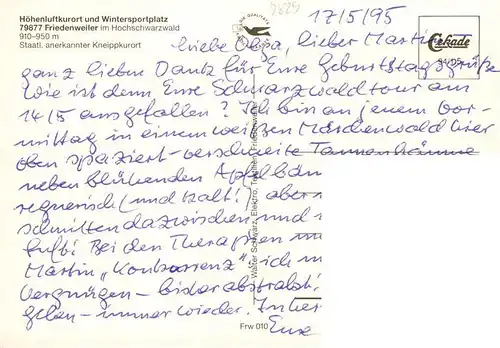 Höhenluftkurort und Wintersportplatz
79877 Friedenweiler im Hochschwarzwald
910–950 m
Staatl. anerkannter Kneippkurort
17/5/95
liebe Olga, lieber Martin
ganz lieben Dank für Eure Geburtstagsgrüße
Wie ist denn Eure Schwarzwaldtour am
14/5 ausgefallen? Ich bin an jenem Vor-
mittag in einem weißen Märchenwald hier
oben spaziert – verschneite Tannenbäume
neben blühenden Apfelbäu
regnerisch (und kalt!) aber
schnitten dazwischen und
Luft! Bei den Therapien
Martin „Konkurrenz" ich
Vergnügen – bisher abstrakt
gelen – immer wieder. In her
Eure
Walter Schwarz, Elektro,
Friedenweiler
Frw 010